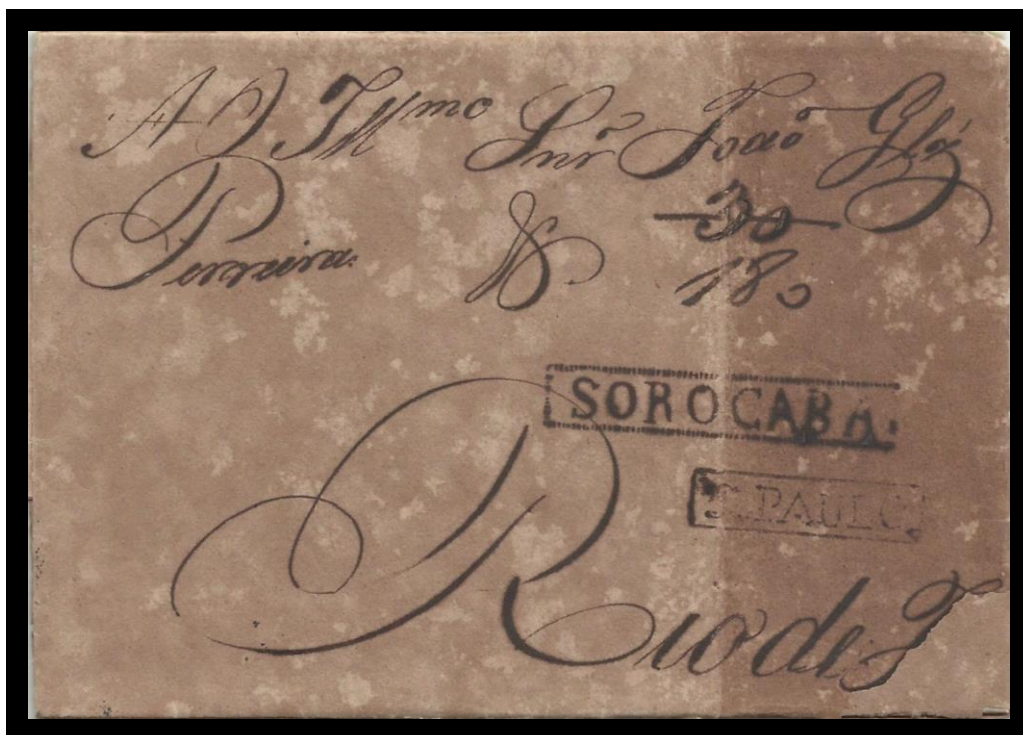 A O Illmo Snr João Glz
Perreira.
30
180
SOROCABA.
S. PAULO
Rio de J